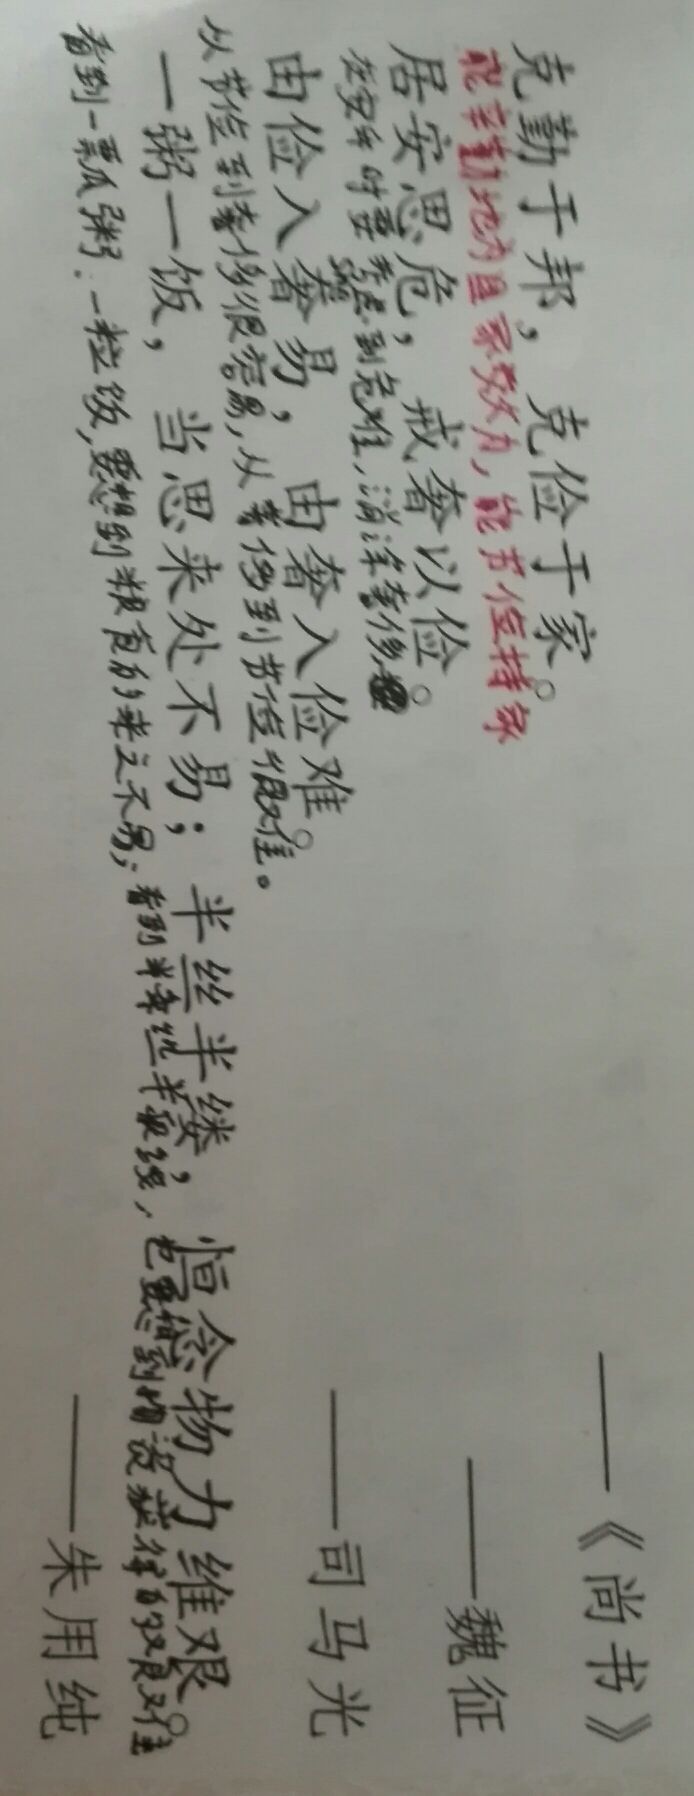 克勤于邦，克俭于家。
能辛勤地为国家效力，能节俭持家
——《尚书》
居安思危，戒奢以俭。
在安乐时要考虑到危难，消除奢侈
——魏征
由俭入奢易，由奢入俭难。
从节俭到奢侈很容易，从奢侈到节俭很难。
——司马光
一粥一饭，当思来处不易；半丝半缕，恒念物力维艰。
看到一瓢粥.一粒饭，要想到粮食的来之不易；看到半丝半线，也要想到获得的艰难
——朱用纯